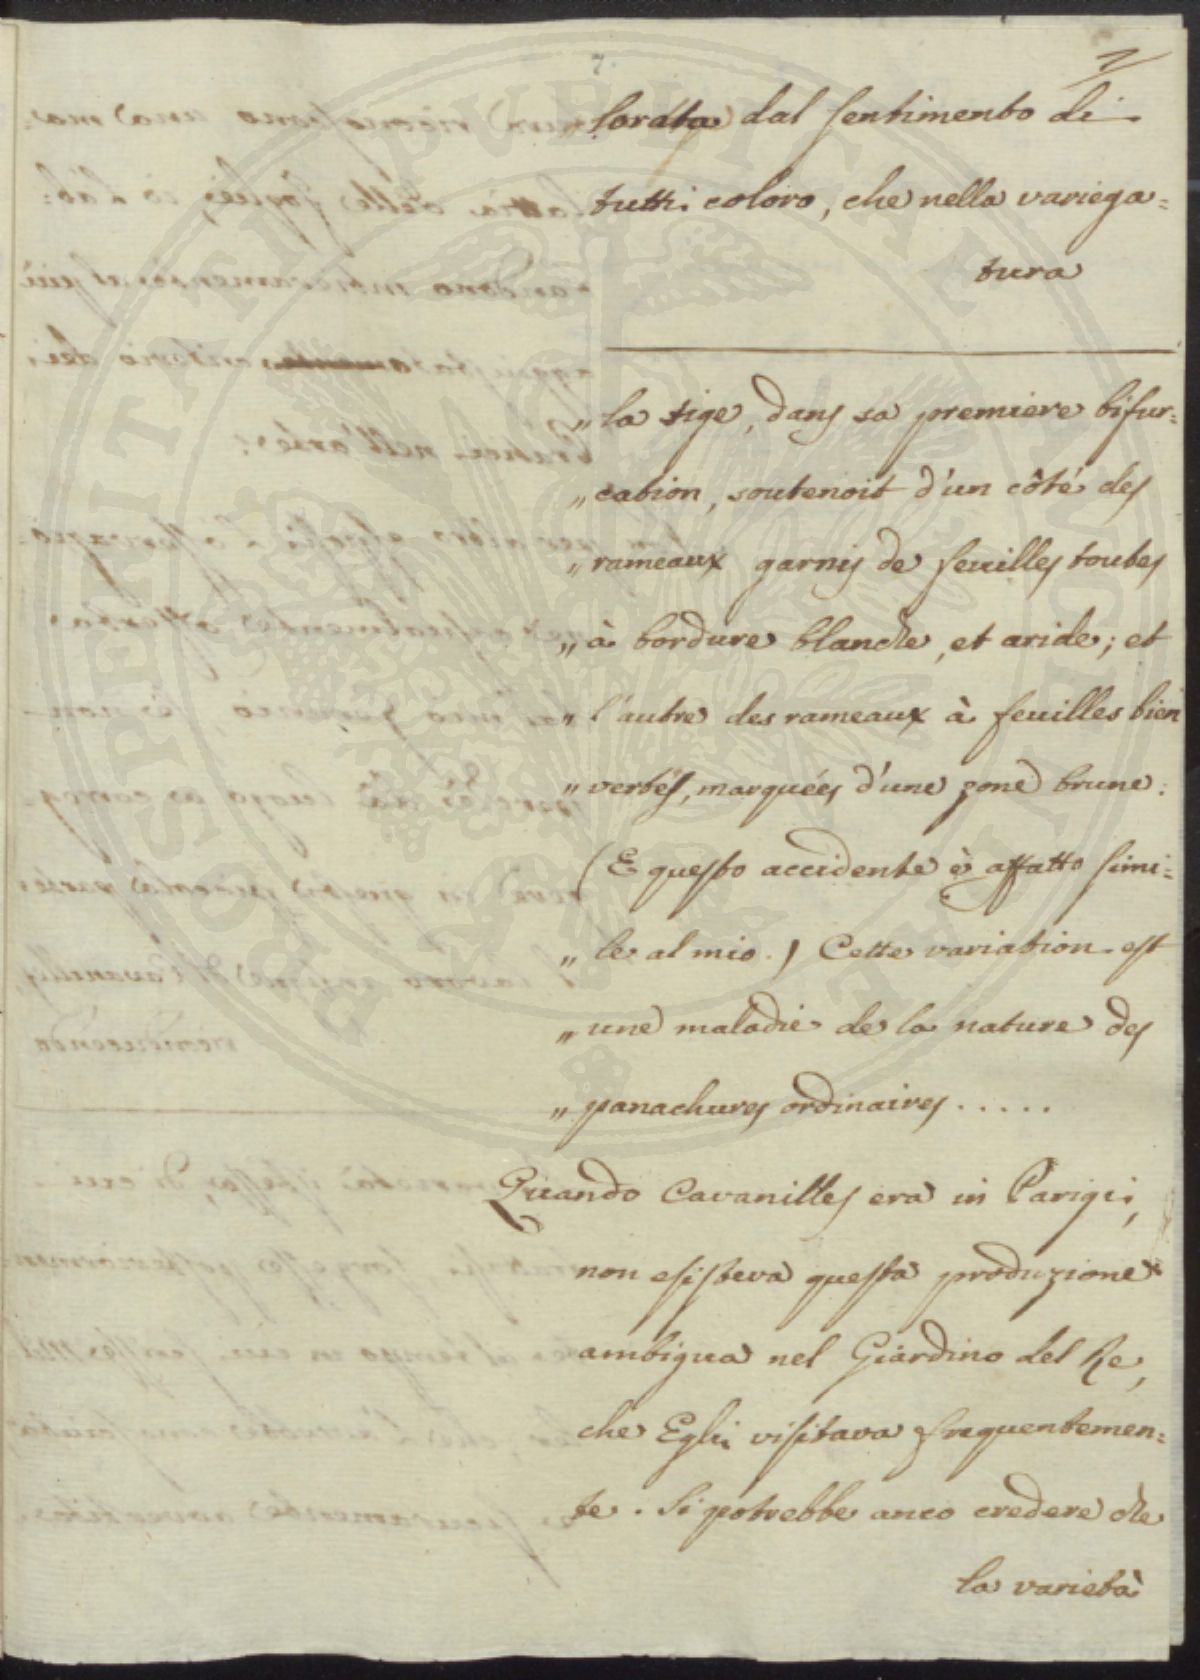 7.
7
lorata dal sentimento di
tutti coloro, che nella variega=
tura
„ la tige, dans sa premiere bifur=
„ cation, soutenoit d'un côté des
„ rameaux garnis de feuilles toutes
„ à bordure blanche, et aride; et
„ l'autre des rameaux à feuilles bien
„ vertes, marquées d'une zone brune:
(E questo accidente è affatto simi=
„ le al mio.) Cette variation est
„ une maladie de la nature des
„ panachures ordinaires.....
Quando Cavanilles era in Parigi,
non esisteva questa produzione
ambigua nel Giardino del Re,
che Egli visitava frequentemen=
te. Si potrebbe anco credere che
la varietà
PROSPERITATI PUBLICAE AUGENDAE